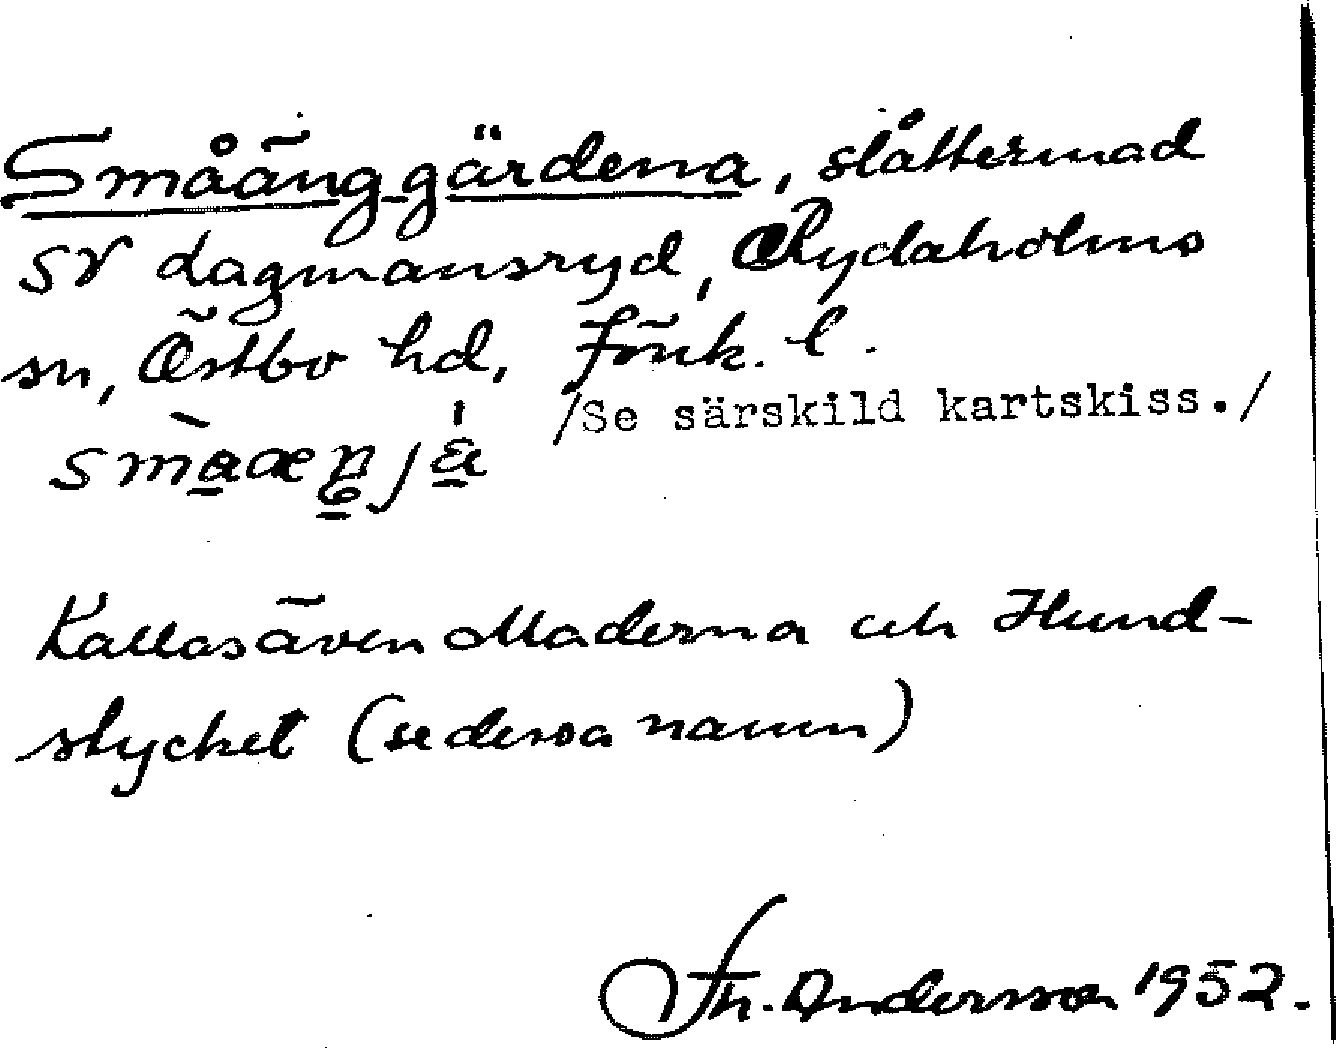 Småäng-gärdena, slåttermad
SV Lagmansryd, Rydaholms
sn, Östbo hd, Jönk. l.
/Se särskild kartskiss./
Kallas även Maderna och Hund-
stycket (se dessa namn)
Fr. Andersson 1952.